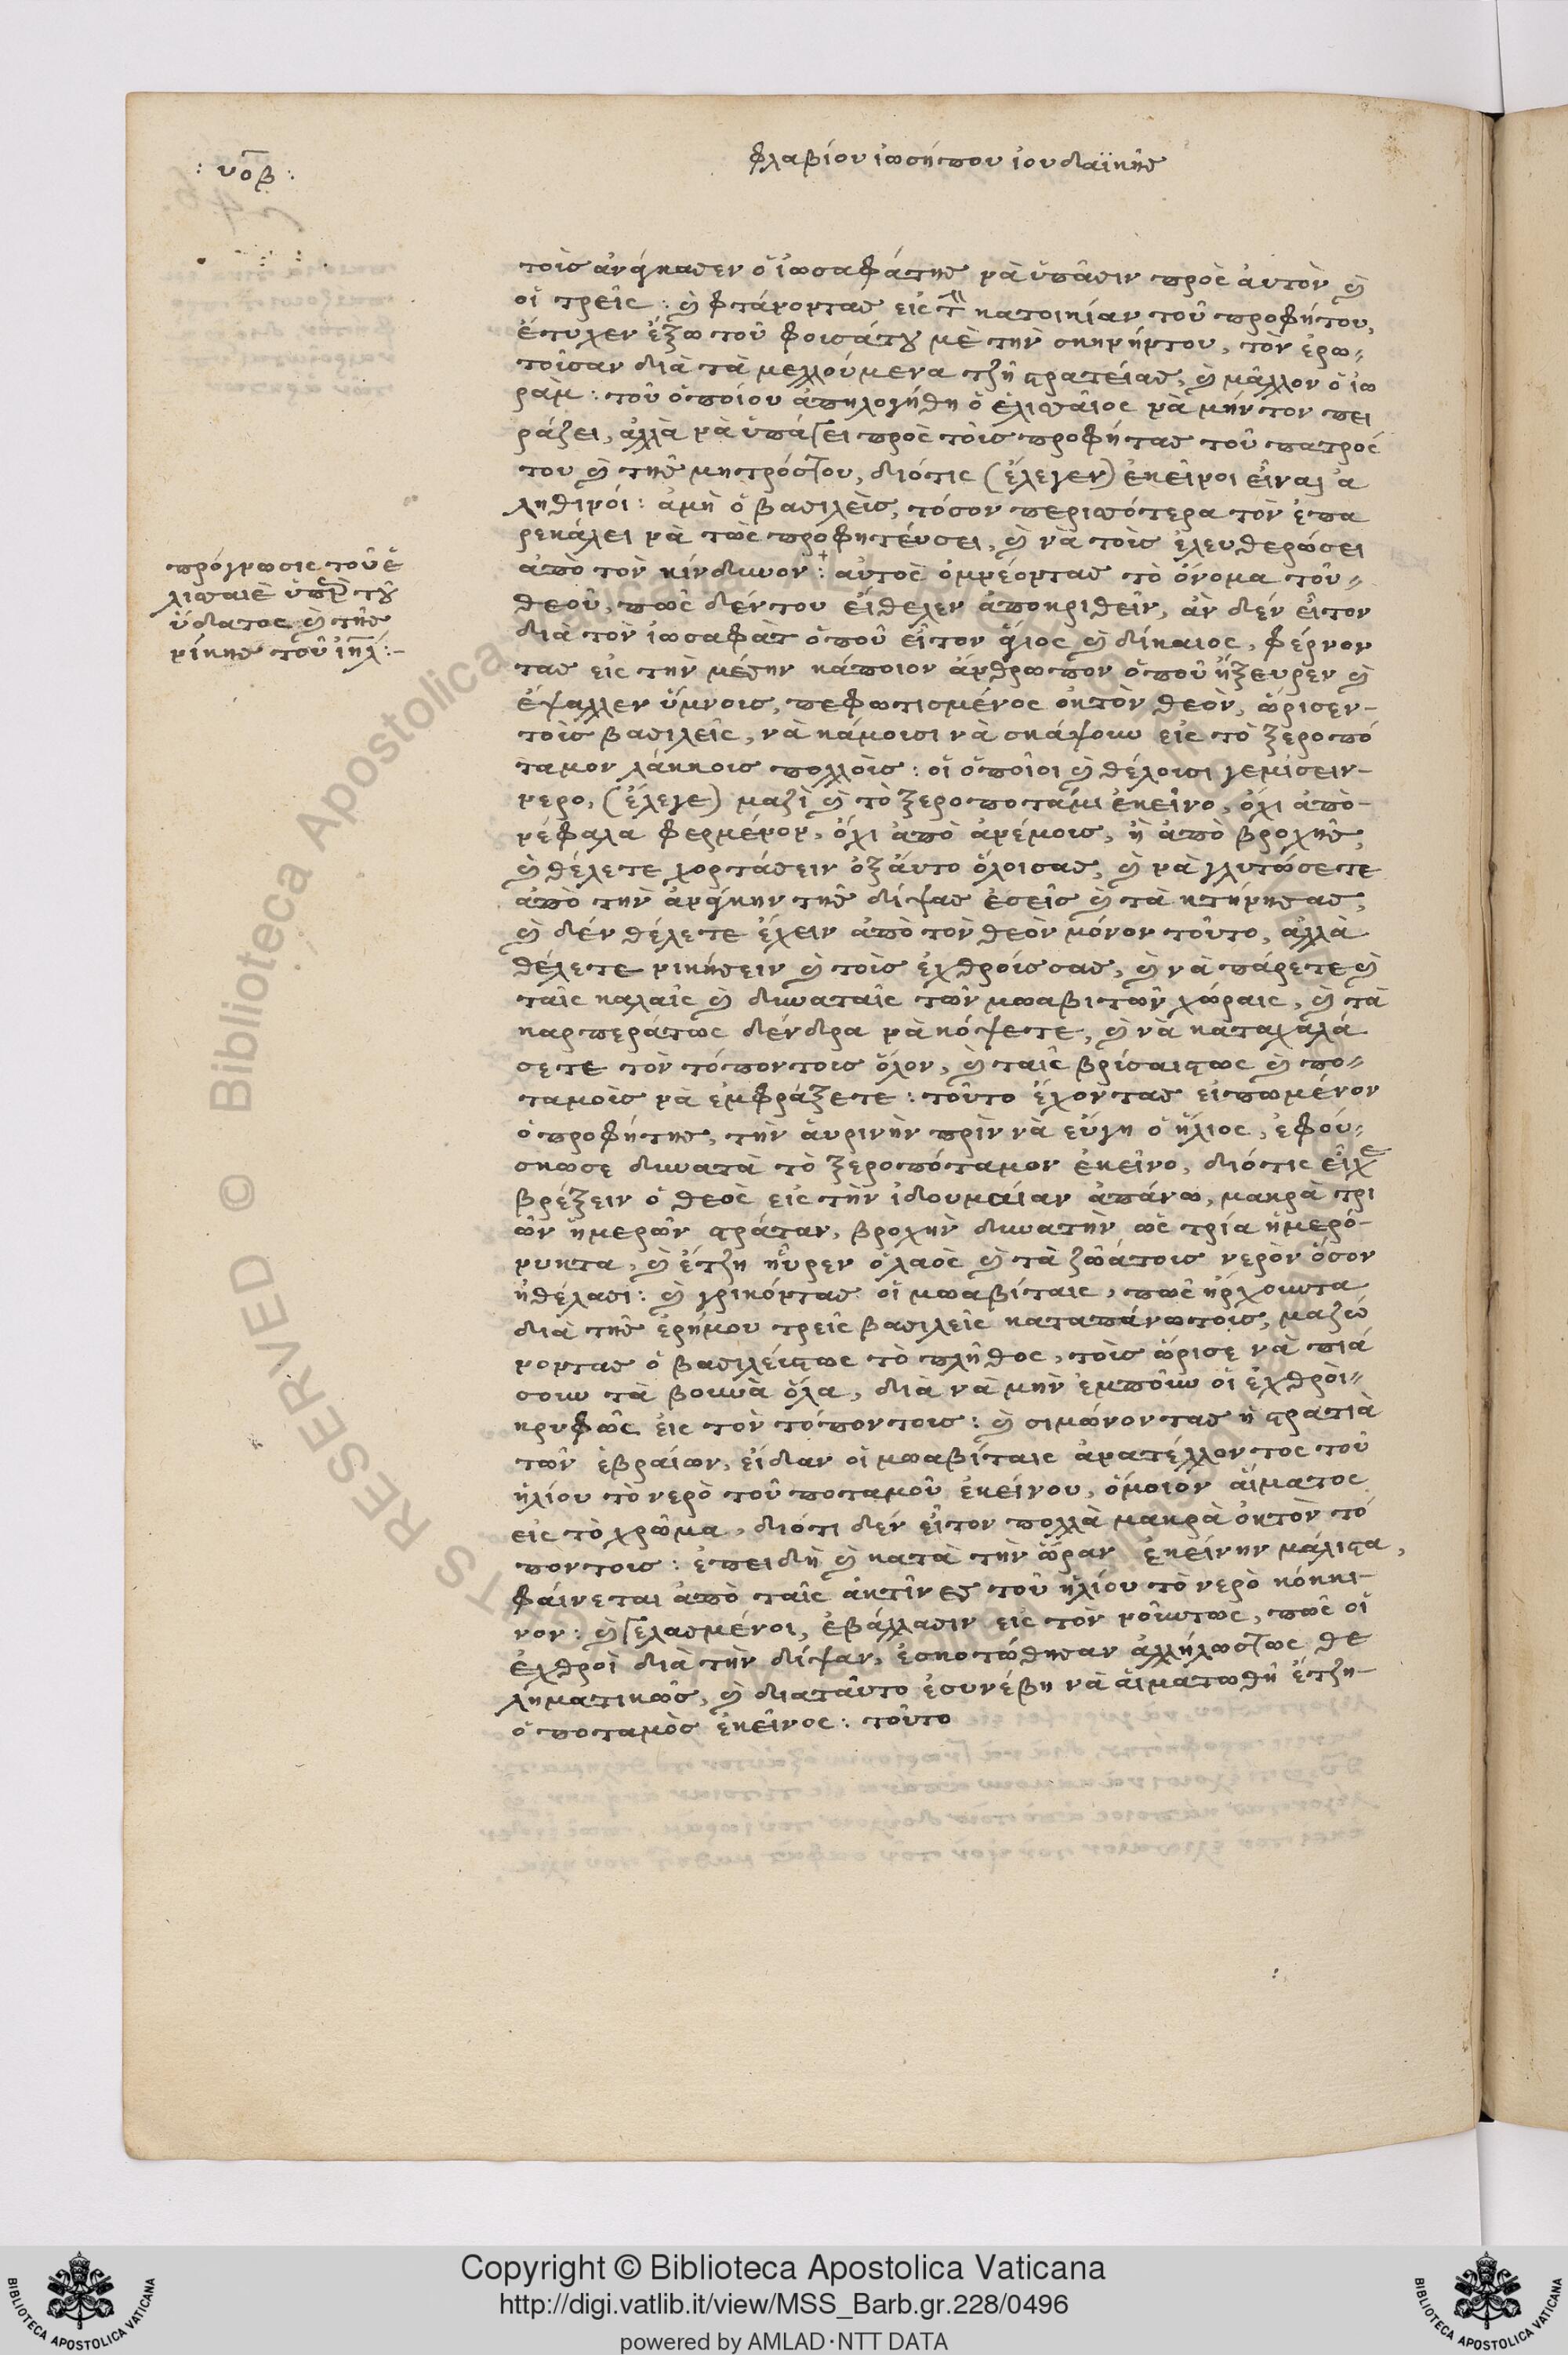 : υοβ :
φλαβίου ἰωσήπου ἰουδαϊκῆς
τοὶς ἀνάγκασεν ὁ ἰωσαφάτης νὰ ὑπᾶσιν πρὸς αὐτὸν καὶ
οἱ τρεῖς : καὶ φτάνοντας εἰς τὴν κατοικίαν τοῦ προφήτου,
ἔτυχεν ἔξω τοῦ φουσάτου μὲ τὴν σκηνήντου, τὸν ἐρω
τοῖσαν διὰ τὰ μελλούμενα τζῆ στρατείας, καὶ μᾶλλον ὁ ἰω
ράμ : τοῦ ὁποίου ἀπηλογήθη ὁ ἐλισσαῖος νὰ μήν τον πει
ράζει, ἀλλὰ νὰ ὑπάγει πρὸς τοὶς προφήτας τοῦ πατρός
του καὶ τῆς μητρόςτου, διότις (ἔλεγεν) ἐκεῖνοι εἶναι ἀ
ληθινοί : ἀμὴ ὁ βασιλεὶς, τόσον περισσότερα τὸν ἐπα
ρεκάλει νὰ τὼς προφητεύσει, καὶ νὰ τοὶς ἐλευθερώσει
ἀπὸ τὸν κίνδυνον : αὐτὸς ὀμνέοντας τὸ ὄνομα τοῦ
θεοῦ, πῶς δέν του εἴθελεν ἀποκριθεῖν, ἂν δὲν εἶτον
διὰ τὸν ἰωσαφὰτ ὁποῦ εἶτον ἅγιος καὶ δίκαιος, φέρνον
τας εἰς τὴν μέσην κάποιον ἄνθρωπον ὁποῦ ἤξευρεν καὶ
ἔψαλλεν ὕμνους, πεφωτισμένος ὀκτὸν θεὸν, ὥρισεν
τοὶς βασιλεῖς, νὰ κάμουσι νὰ σκάψουν εἰς τὸ ξεροπό
ταμον λάκκους πολλοὶς : οἱ ὁποῖοι καὶ θέλουσι γεμίσειν
νερο, (ἔλεγε) μαζὶ καὶ τὸ ξεροποτάμι ἐκεῖνο, ὄχι ἀπὸ
νέφαλα φερμένον, ὄχι ἀπὸ ἀνέμους, ἢ ἀπὸ βροχῆς,
καὶ θέλετε χορτάσειν ὀξαύτο ὅλοισας, καὶ νὰ γλυτώσετε
ἀπὸ τὴν ἀνάγκην τῆς δίψας ἐσεῖς καὶ τὰ κτήνησας,
καὶ δὲν θέλετε ἔχειν ἀπὸ τὸν θεὸν μόνον τοῦτο, ἀλλὰ
θέλετε νικήσειν καὶ τοὶς ἐχθροίςσας, καὶ νὰ πάρετε καὶ
ταῖς καλαῖς καὶ δυναταῖς τῶν μωαβιτῶν χώραις, καὶ τὰ
καρπεράτως δένδρα νὰ κόψετε, καὶ νὰ καταχαλά
σετε τὸν τόποντοις ὅλον, καὶ ταῖς βρίσαιςτως καὶ πο
ταμοὶς νὰ ἐμφράξετε : τοῦτο ἔχοντας εἰπωμένον
ὁ προφήτης, τὴν ἀυρινὴν πρὶν νὰ εὔγη ὁ ἥλιος, ἐφού
σκωσε δυνατὰ τὸ ξεροπόταμον ἐκεῖνο, διότις εἶχε
βρέξειν ὁ θεὸς εἰς τὴν ἰδουμαίαν ἀπάνω, μακρὰ τρι
ῶν ἡμερῶν στράταν, βροχὴν δυνατὴν ὡς τρία ἡμερό
νυκτα, καὶ ἔτζη ηὗρεν ὁ λαὸς καὶ τὰ ζῶάτοις νερὸν ὅσον
ἠθέλασι : καὶ γρικόντας οἱ μωαβίταις, πῶς ἤρχουντα
διὰ τῆς ἐρήμου τρεῖς βασιλεῖς καταπάνωτοις, μαζώ
νοντας ὁ βασιλείςτως τὸ πλῆθος, τοὶς ὥρισε νὰ πιά
σουν τὰ βουνὰ ὅλα, διὰ νὰ μὴν ἐμποῦν οἱ ἐχθροὶ
κρυφῶς εἰς τὸν τόποντοις : καὶ σιμώνοντας ἡ στρατιὰ
τῶν ἑβραίων, εἶδαν οἱ μωαβίταις ἀνατέλλοντος τοῦ
ἡλίου τὸ νερὸ τοῦ ποταμοῦ ἐκείνου, ὅμοιον αἵματος
εἰς τὸ χρῶμα, διότι δὲν εἶτον πολλὰ μακρὰ ὀκτὸν τό
ποντοις : ἐπειδὴ καὶ κατὰ τὴν ὥραν ἐκείνην μάλιστα,
φαίνεται ἀπὸ ταῖς ἀκτῖνες τοῦ ἡλίου τὸ νερὸ κόκκι
νον : καὶ γελασμένοι, ἐβάλλασιν εἰς τὸν νοῦντως, πῶς οἱ
ἐχθροὶ διὰ τὴν δίψαν, ἐσκοτώθησαν ἀλλήλωςτως θε
ληματικῶς, καὶ διαταῦτο ἐσυνέβη νὰ αἱματωθῆ ἔτζη
ὁ ποταμὸς ἐκεῖνος : τοῦτο
πρόγνωσις τοῦ ἐ
λισσαιὲ ὑπὲρ τοῦ
ὕδατος καὶ τῆς
νίκης τοῦ ἰηλ :-
Copyright © Biblioteca Apostolica Vaticana
http://digi.vatlib.it/view/MSS_Barb.gr.228/0496
powered by AMLAD·NTT DATA